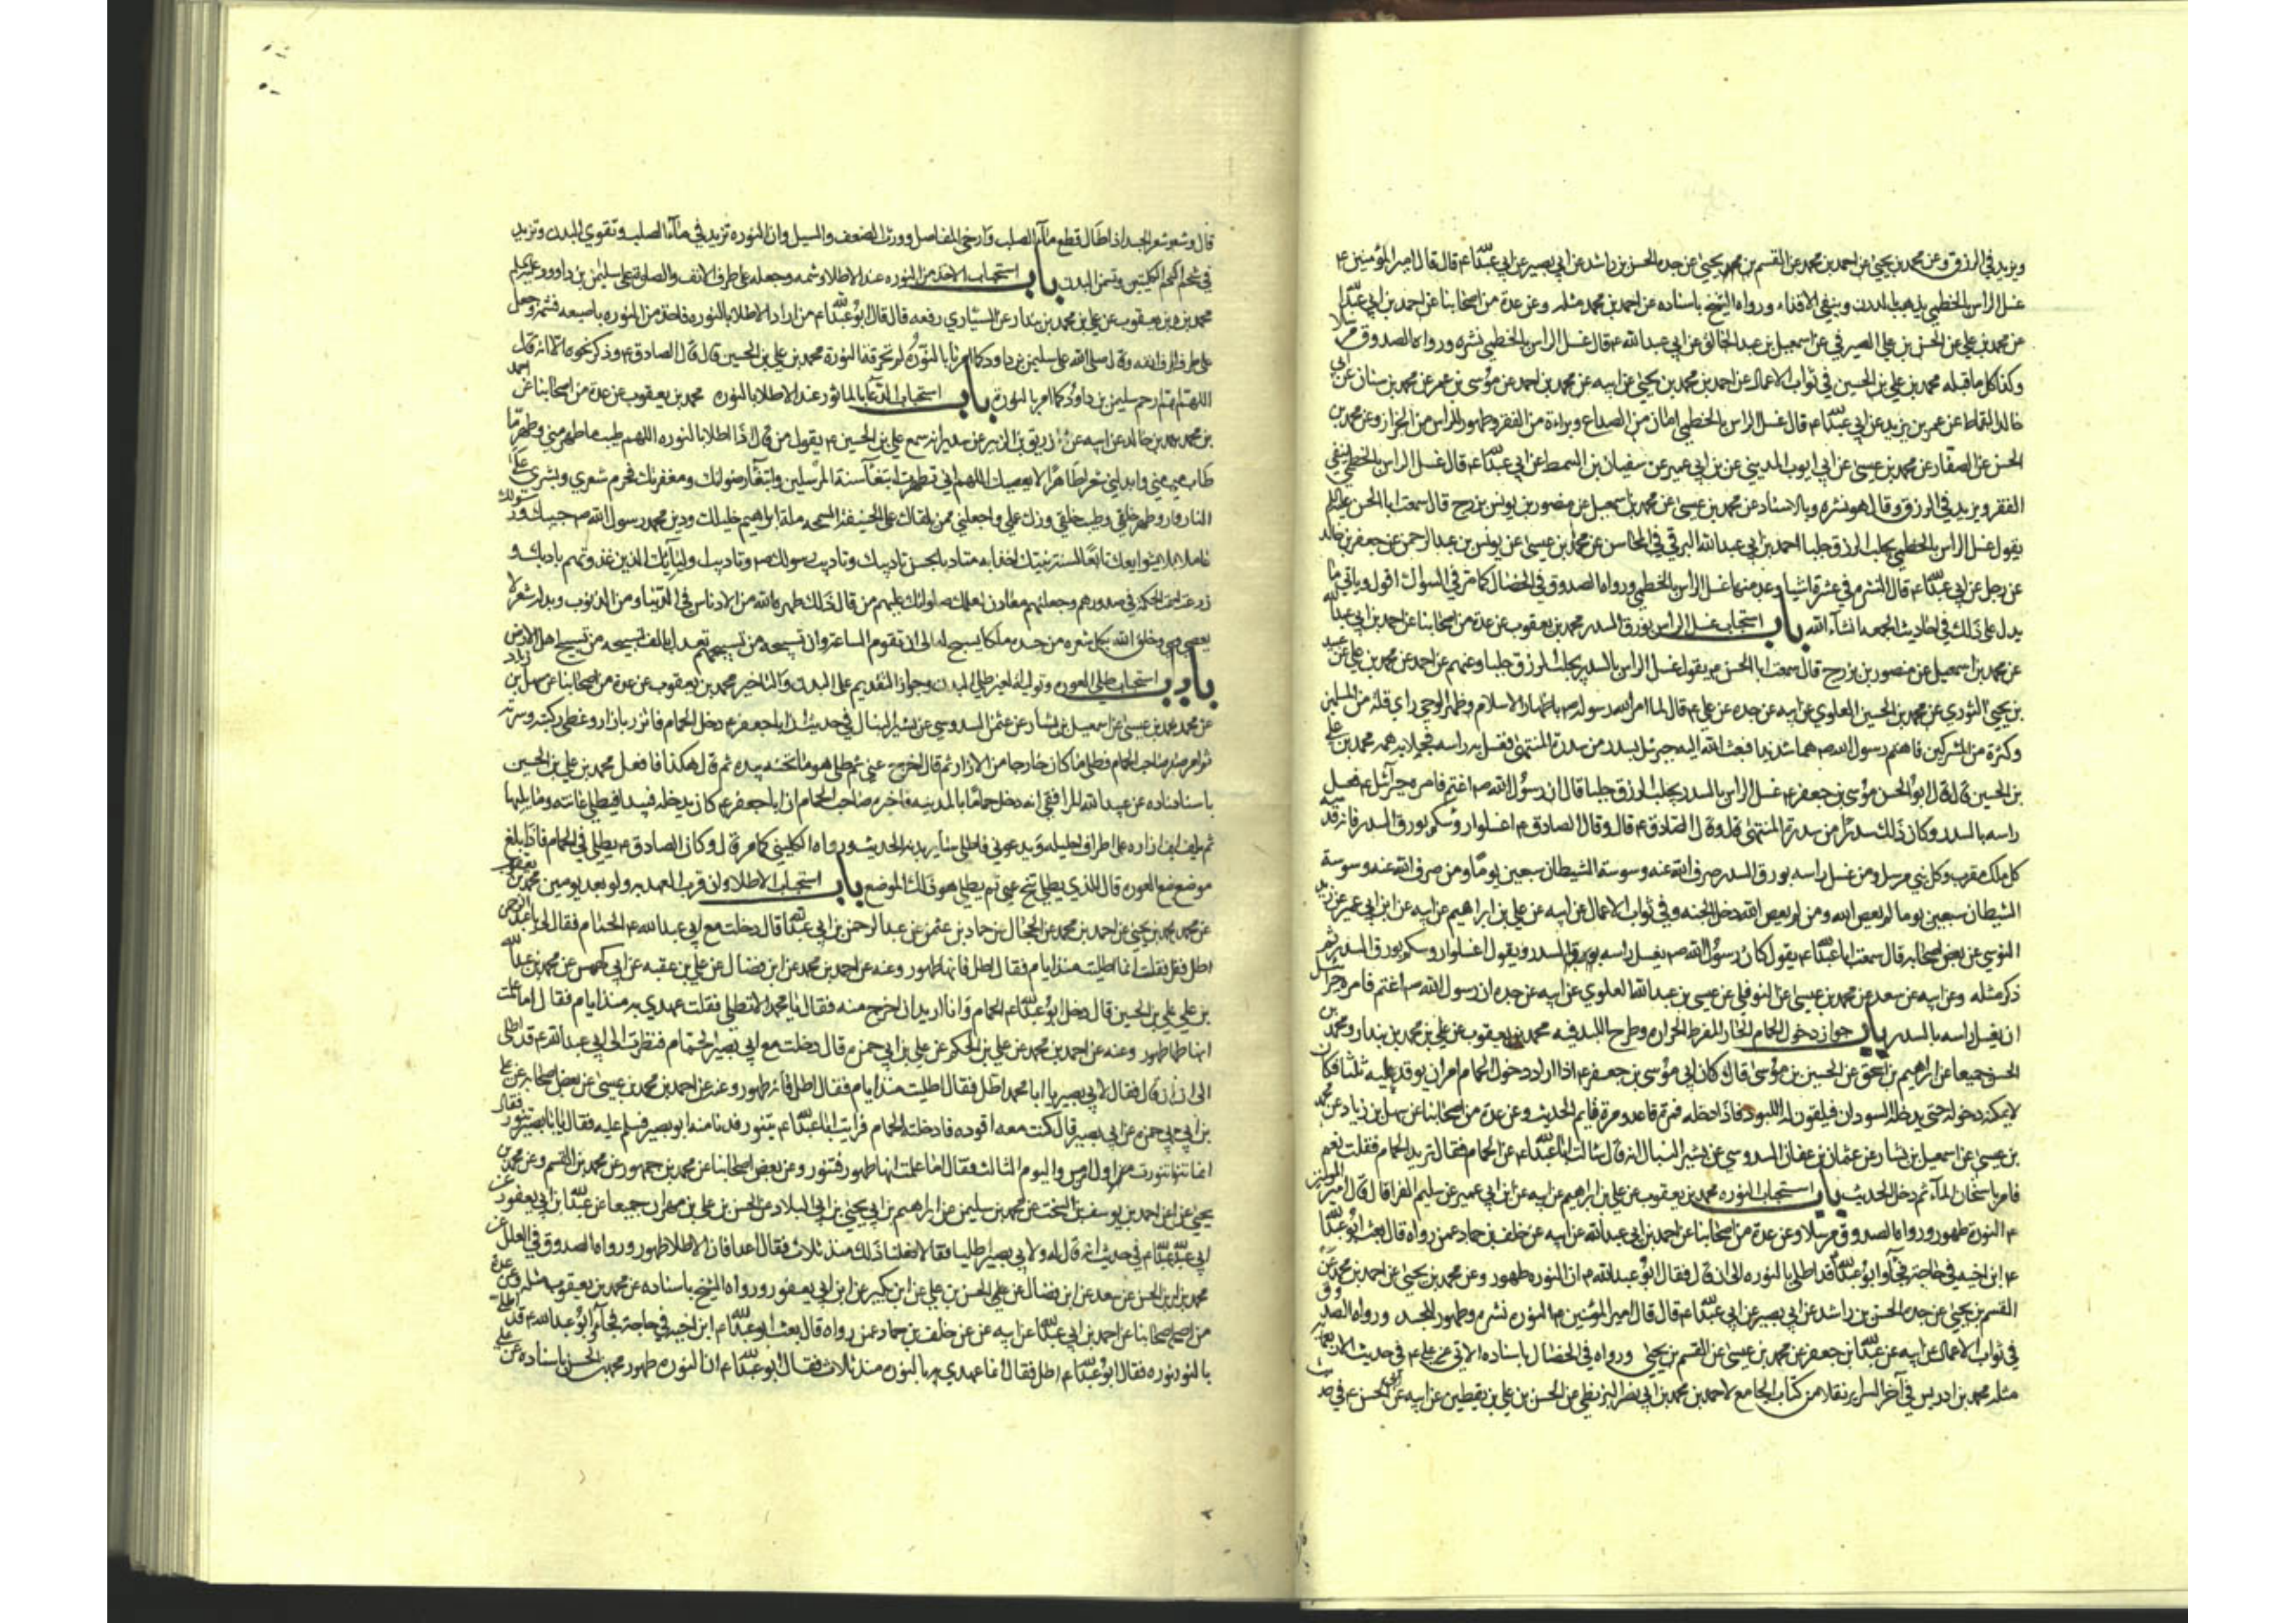 ويزيد في الرزق وعن محمد بن يحيى عن احمد بن محمد عن القسم بن محمد يحيى عن جده الحسن بن راشد عن ابي بصير عن ابي عبدالله ع قال قال امير المؤمنين ع
غسل الراس بالخطمي يذهب بالدرن وينفي الاقذاء ورواه الشيخ باسناده عن احمد بن محمد مثله وعن عدة من اصحابنا عن احمد بن ابي عبدالله
عن محمد بن علي عن الحسن بن علي الصيرفي عن اسمعيل بن عبد الخالق عن ابي عبد الله ع قال غسل الراس بالخطمي نشره ورواه الصدوق مرسلا
وكذا كل ما قبله محمد بن علي بن الحسين في ثواب الاعمال عن احمد بن محمد بن يحيى عن ابيه عن محمد بن احمد عن موسى بن عمر عن محمد بن سنان عن ابي
خالد القماط عن عمر بن يزيد عن ابي عبدالله ع قال غسل الراس بالخطمي امان من الصداع وبراءة من الفقر وطهور للراس من الحزاز وعن محمد بن
الحسن عن الصفار عن محمد بن عيسى عن ابي ايوب المديني عن بن ابي عمير عن سفيان بن السمط عن ابي عبدالله ع قال غسل الراس بالخطمي ينفي
الفقر ويزيد في الرزق وقال هو نشره وبالاسناد عن محمد بن عيسى عن محمد بن اسمعيل عن منصور بن يونس بن بزرج قال سمعت ابا الحسن عليه السلم
يقول غسل الراس بالخطمي يجلب الرزق جلبا احمد بن ابي عبدالله البرقي في المحاسن عن محمد بن عيسى عن يونس بن عبد الرحمن عن جعفر بن خالد
عن رجل عن ابي عبدالله ع قال النشره في عشرة اشيا وعد منها غسل الراس بالخطمي ورواه الصدوق في الخصال كما مر في السواك اقول وياتي ما
يدل على ذلك في احاديث الجمعه انشآء الله باب استحباب غسل الراس بورق السدر محمد بن يعقوب عن عدة من اصحابنا عن احمد بن ابي عبدالله
عن محمد بن اسمعيل عن منصور بن بزرج قال سمعت ابا الحسن ع يقول غسل الراس بالسدر يجلب الرزق جلبا وعنهم عن احمد عن محمد بن علي عن عبيد
بن يحيى الثوري عن محمد بن الحسين العلوي عن ابيه عن جده عن علي ع قال لما امر الله رسوله ص باظهار الاسلام وظهر الوحي راى قلة من المسلمين
وكثرة من المشركين فاهتم رسول الله ص هما شديدا فبعث الله اليه جبرئيل بسدر من سدرة المنتهى فغسل به راسه فجلا به همه محمد بن علي
بن الحسين قال قال ابو الحسن موسى بن جعفر ع غسل الراس بالسدر يجلب الرزق جلبا قال ان رسول الله ص اغتم فامره جبرآئيل ع فغسل
راسه بالسدر وكان ذلك سدرا من سدرة المنتهى قال وقال الصادق ع قال وقال الصادق ع اغسلوا رؤسكم بورق السدر فانه قدسه
كل ملك مقرب وكل نبي مرسل ومن غسل راسه بورق السدر صرف الله عنه وسوسة الشيطان سبعين يوما ومن صرف الله عنه وسوسة
الشيطان سبعين يوما لم يعص الله ومن لم يعص الله دخل الجنه وفي ثواب الاعمال عن ابيه عن علي بن ابراهيم عن ابيه عن ابن ابي عمير عن زيد
النرسي عن بعض اصحابه قال سمعت ابا عبدالله ع يقول كان رسول الله ص يغسل راسه بورق السدر ويقول اغسلوا رؤسكم بورق السدر ثم
ذكر مثله وعن ابيه عن سعد عن محمد بن عيسى عن النوفلي عن عيسى بن عبدالله العلوي عن ابيه عن جده ان رسول الله ص اغتم فامره جبرئيل
ان يغسل راسه بالسدر باب جواز دخول الحمام الحار المفرط الحراره وطرح اللبد فيه محمد بن يعقوب عن علي بن محمد بن بندار ومحمد بن
الحسن جميعا عن ابراهيم بن اسحق عن الحسين بن موسى قال كان ابي موسى بن جعفر ع اذا اراد دخول الحمام امر ان يوقد عليه ثلثا فكان
لا يمكنه دخوله حتى يدخله السودان فيلقون له اللبود فاذا دخله فمرة قاعد ومرة قايم الحديث وعن عدة من اصحابنا عن سهل بن زياد عن محمد
بن عيسى عن اسمعيل بن يسار عن عثمان بن عفان السدوسي عن بشير النبال انه قال سالت ابا عبدالله ع عن الحمام فقال تريد الحمام فقلت نعم
فامر باسخان المآء ثم دخل الحديث باب استحباب النوره محمد بن يعقوب عن علي بن ابراهيم عن ابيه عن ابن ابي عمير عن سليم الفرا قال قال امير المؤمنين
ع النورة طهور ورواه الصدوق مرسلا وعن عدة من اصحابنا عن احمد بن ابي عبدالله عن ابيه عن خلف بن حماد عمن رواه قال بعث ابو عبدالله
ع ابن اخيه في حاجة فجآء وابو عبدالله قد اطلى بالنوره الى ان قال فقال ابو عبدالله ع ان النوره طهور وعن محمد بن يحيى عن احمد بن محمد عن
القسم بن يحيى عن جده الحسن بن راشد عن ابي بصير عن ابي عبدالله ع قال قال امير المؤمنين ع النوره نشره وطهور للجسد ورواه الصدوق
في ثواب الاعمال عن ابيه عن عبدالله بن جعفر عن محمد بن عيسى عن القسم بن يحيى ورواه في الخصال باسناده الاتي عن علي ع في حديث الاربعمائه
مثله محمد بن ادريس في آخر السراير نقلا من كتاب الجامع لاحمد بن محمد بن ابي نصر البزنطي عن الحسن بن علي بن يقطين عن ابيه عن ابي الحسن ع في حديث
قال وشعر الجسد اذا طال قطع مآء الصلب وارخى المفاصل وورث الضعف والسل وان النوره تزيد في مآء الصلب وتقوي البدن وتزيد
في شحم الكليتين وتسمن البدن باب استحباب الاخذ من النوره عند الاطلا وشمه وجعله على طرف الانف والصلوة على سليمن بن داوود عليهم السلم
محمد بن يعقوب عن علي بن محمد بن بندار عن السياري رفعه قال قال ابو عبدالله ع من اراد الاطلا بالنوره فاخذ من النوره باصبعه فشمه وجعل
على طرف انفه وقال صلى الله على سليمن بن داود كما امرنا بالنوره لم تحرقه النورة محمد بن علي بن الحسين قال قال الصادق ع وذكر نحوه الا انه قال
اللهم ارحم سليمن بن داود كما امر بالنورة باب استحباب الدعآء بالماثور عند الاطلا بالنوره محمد بن يعقوب عن عدة من اصحابنا عن احمد
بن محمد بن خالد عن ابيه عن زريق بن الزبير عن سدير انه سمع علي بن الحسين ع يقول من قال اذا اطلا بالنوره اللهم طيب ما طهر مني وطهر ما
طاب مني وابدلني شعرا طاهرا لا يعصيك اللهم اني تطهرت ابتغآء سنة المرسلين وابتغآء رضوانك ومغفرتك فحرم شعري وبشري على
النار وطهر خلقي وطيب خلقي وزك عملي واجعلني ممن يلقاك على الحنيفة السمحه ملة ابراهيم خليلك ودين محمد رسول الله ص حبيبك ورسولك
عاملا بشرايعك تابعا لسنة نبيك اخذا به متادبا بحسن تاديبك وتاديب رسولك ص وتاديب اوليآئك الذين غذوتهم بادبك و
زرعت الحكمة في صدورهم وجعلتهم معادن لعلمك صلواتك عليهم من قال ذلك طهره الله من الادناس في الدنيا ومن الذنوب وبدله شعرا لا
يعصي وخلق الله بكل شعره من جسده ملكا يسبح له الى ان تقوم الساعة وان تسبيحة من تسبيحهم تعدل بالف تسبيحه من تسبيح اهل الارض
باب استحباب طلي العوره وتوليه لغير طلي البدن وجواز التقديم على البدن والتاخير محمد بن يعقوب عن عدة من اصحابنا عن سهل بن زياد
عن محمد بن عيسى عن اسمعيل بن يسار عن عثمن السدوسي عن بشير النبال في حديث ان ابا جعفر ع دخل الحمام فاتزر بازار وغطى ركبته وسرته
ثم امر صاحب الحمام فطلى ما كان خارجا من الازار ثم قال اخرج عني ثم طلى هو ما تحته بيده ثم قال هكذا فافعل محمد بن علي بن الحسين
باسناده عن عبيد الله المرافقي انه دخل حماما بالمدينه فاخبره صاحب الحمام ان ابا جعفر ع كان يدخله فيبدا فيطلي عانته وما يليها
ثم يلف ازاره على اطراف احليله ويدعوني فاطلي ساير بدنه الحديث ورواه الكليني كما مر قال وكان الصادق ع يطلي في الحمام فاذا بلغ
موضع العوره قال للذي يطلي تنح عني ثم يطلي هو ذلك الموضع باب استحباب الاطلا وان قرب العهد به ولو بعد يومين محمد بن يعقوب
عن محمد بن يحيى عن احمد بن محمد عن الحجال عن حماد بن عثمن عن عبد الرحمن بن ابي عبدالله قال دخلت مع ابي عبد الله ع الحمام فقال لي يا عبد الرحمن
اطل فقلت انما اطليت منذ ايام فقال اطل فانها طهور وعنه عن احمد بن محمد عن ابن فضال عن علي بن عقبه عن ابي كهمس عن محمد بن عبدالله
بن علي بن الحسين قال دخل ابو عبدالله ع الحمام وانا اريد ان اخرج منه فقال يا محمد الا تطلي فقلت عهدي به منذ ايام فقال اما علمت
انها طهور وعنه عن احمد بن محمد عن علي بن الحكم عن علي بن ابي حمزه قال دخلت مع ابي بصير الحمام فنظرت الى ابي عبد الله ع قد اطلى
الى ان قال فقال لابي بصير يا ابا محمد اطل فقال اطليت منذ ايام فقال اطل فانه طهور وعنه عن احمد بن محمد بن عيسى عن بعض اصحابه عن علي
بن ابي حمزه عن ابي بصير قال كنت معه اقوده فادخلته الحمام فرايت ابا عبدالله ع يتنور فدنا منه ابو بصير فسلم عليه فقال يا ابا بصير تنور فقال
انما تنورت اول امس واليوم الثالث فقال اما علمت انها طهور فتنور وعن بعض اصحابنا عن محمد بن جمهور عن محمد بن القسم وعن محمد بن
يحيى عن احمد بن يوسف بن السخت عن محمد بن سليمن عن ابراهيم بن ابي يحيى بن ابي البلاد عن الحسن بن علي بن مهران جميعا عن عبدالله بن ابي يعفور عن
ابي عبدالله ع في حديث انه قال له ولابي بصير اطليا فقالا فعلنا ذلك منذ ثلاث فقال اعيدا فان الاطلا طهور ورواه الصدوق في العلل عن
محمد بن الحسن عن سعد عن ابن فضال عن علي الحسن بن علي عن ابن بكير عن ابن ابي يعفور ورواه الشيخ باسناده عن محمد بن يعقوب مثله وعن عدة
من اصحابنا عن احمد بن ابي عبدالله عن ابيه عن خلف بن حماد عمن رواه قال بعث ابو عبدالله ع ابن اخيه في حاجة فجآء وابو عبدالله ع قد اطلى
بالنوره فقال ابو عبدالله ع اطل فقال انما عهدي بالنوره منذ ثلاث فقال ابو عبدالله ع ان النوره طهور محمد بن الحسن باسناده عن علي